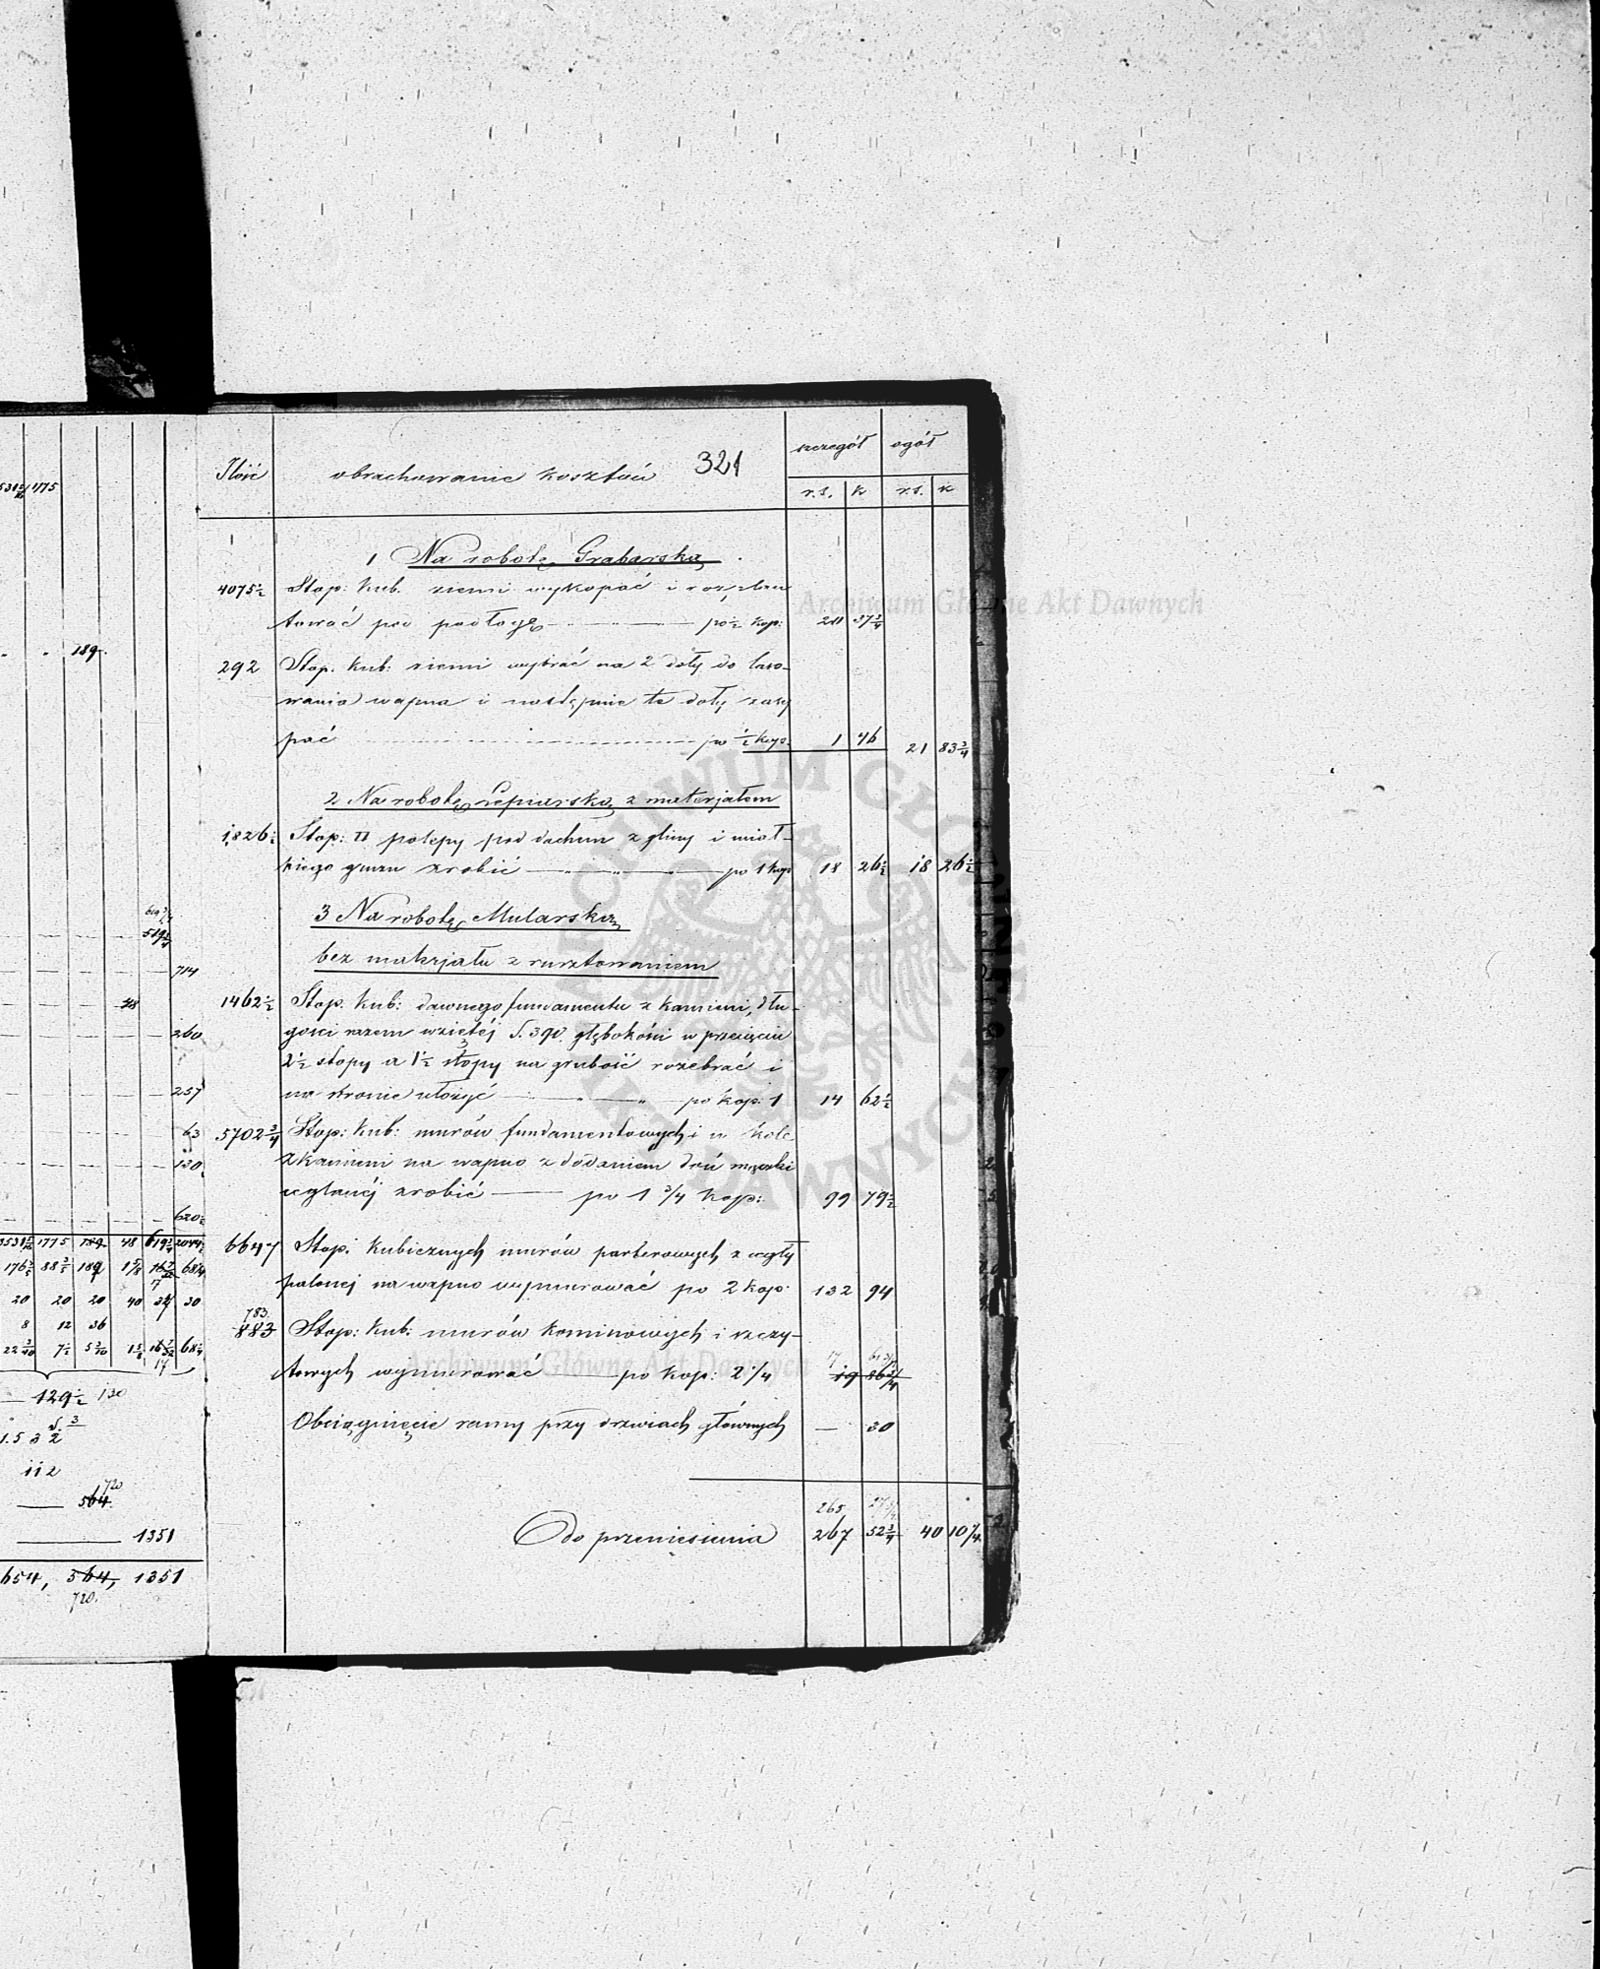 531 5/12 1775
189.
619 3/4
519 3/4
714
48
260
257
63
130
620 1/2
3531 5/12 1775 189 48 619 3/4 2044 1/2
20 20 20 40 30
8 12 36
129 1/2 130
112
720
564
1351
654, 564, 1351
720.
321
Ilość
obrachowanie kosztów
szczegół
ogół
r.s. k r.s. k
1 Na robotę Grabarską
4075 1/2 Stop: kub. ziemi wykopać i rozplan
tować pod podłogę po 1/2 kop: 20 37 3/4
292 Stop. kub: ziemi wybrać na 2 doły do laso-
wania wapna i następnie te doły zasy
pać po 1/2 kop. 1 46 21 83 3/4
2 Na robotę Lepiarską z materjałem
1,826 1/2 Stop: □ polepy pod dachem z gliny i miał-
kiego gruzu zrobić po 1 kop 18 26 1/2 18 26 1/2
3 Na robotę Mularską
bez materjału z rusztowaniem
1462 1/2 Stop. kub: dawnego fundamentu z kamieni, dłu-
gości razem wziętéj S. 390. głębokości w przecięciu
2 1/2 stopy a 1 1/2 stopy na grubość rozebrać i
na stronie ułożyć po kop: 1 14 62 1/2
5702 3/4 Stop: kub: murów fundamentowych i
z kamieni na wapno z dodaniem
ceglanéj zrobić po 1 3/4 kop: 99 79 1/2
6647 Stop: kubicznych murów parterowych z cegły
palonej na wapno wymurować po 2 kop. 132 94
783
883 Stop: kub: murów kominowych i szczy-
towych wymurować po kop: 2 1/4 19 86 3/4
17 61 3/4
Obciągnięcie ramy przy drzwiach głównych — 30
265
Do przeniesienia 267 52 3/4 40 10 1/4
Archiwum Główne Akt Dawnych
Archiwum Główne Akt Dawnych
ARCHIWUM GŁÓWNE AKT DAWNYCH